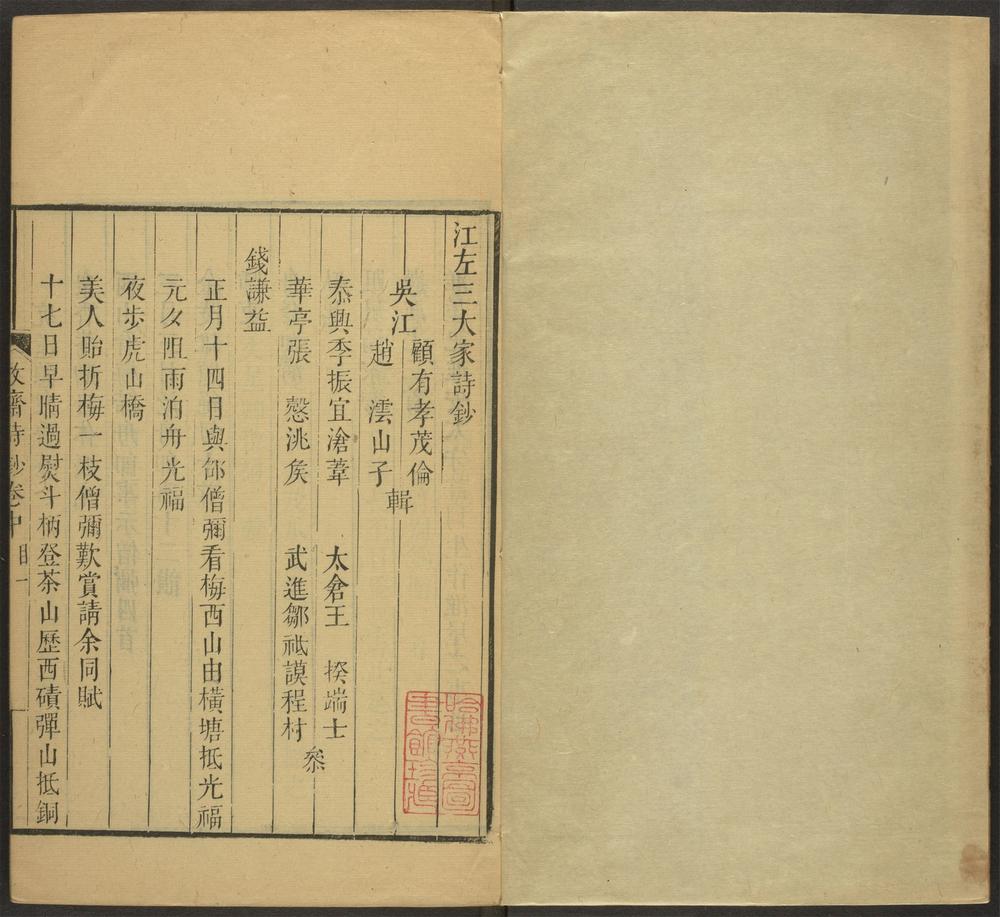 江左三大家詩鈔
吳江
顧有孝茂倫
趙 澐山子
輯
泰興季振宜滄葦 太倉王 揆端士
華亭張 慤洮矦 武進鄒祗謨程村
叅
錢謙益
正月十四日與邵僧彌看梅西山由橫塘抵光福
元夕阻雨泊舟光福
夜步虎山橋
美人貽折梅一枝僧彌歎賞請余同賦
十七日早晴過熨斗柄登茶山歷西磧彈山抵銅
牧齋詩鈔卷中 目 一
哈佛燕京圖書館珍藏